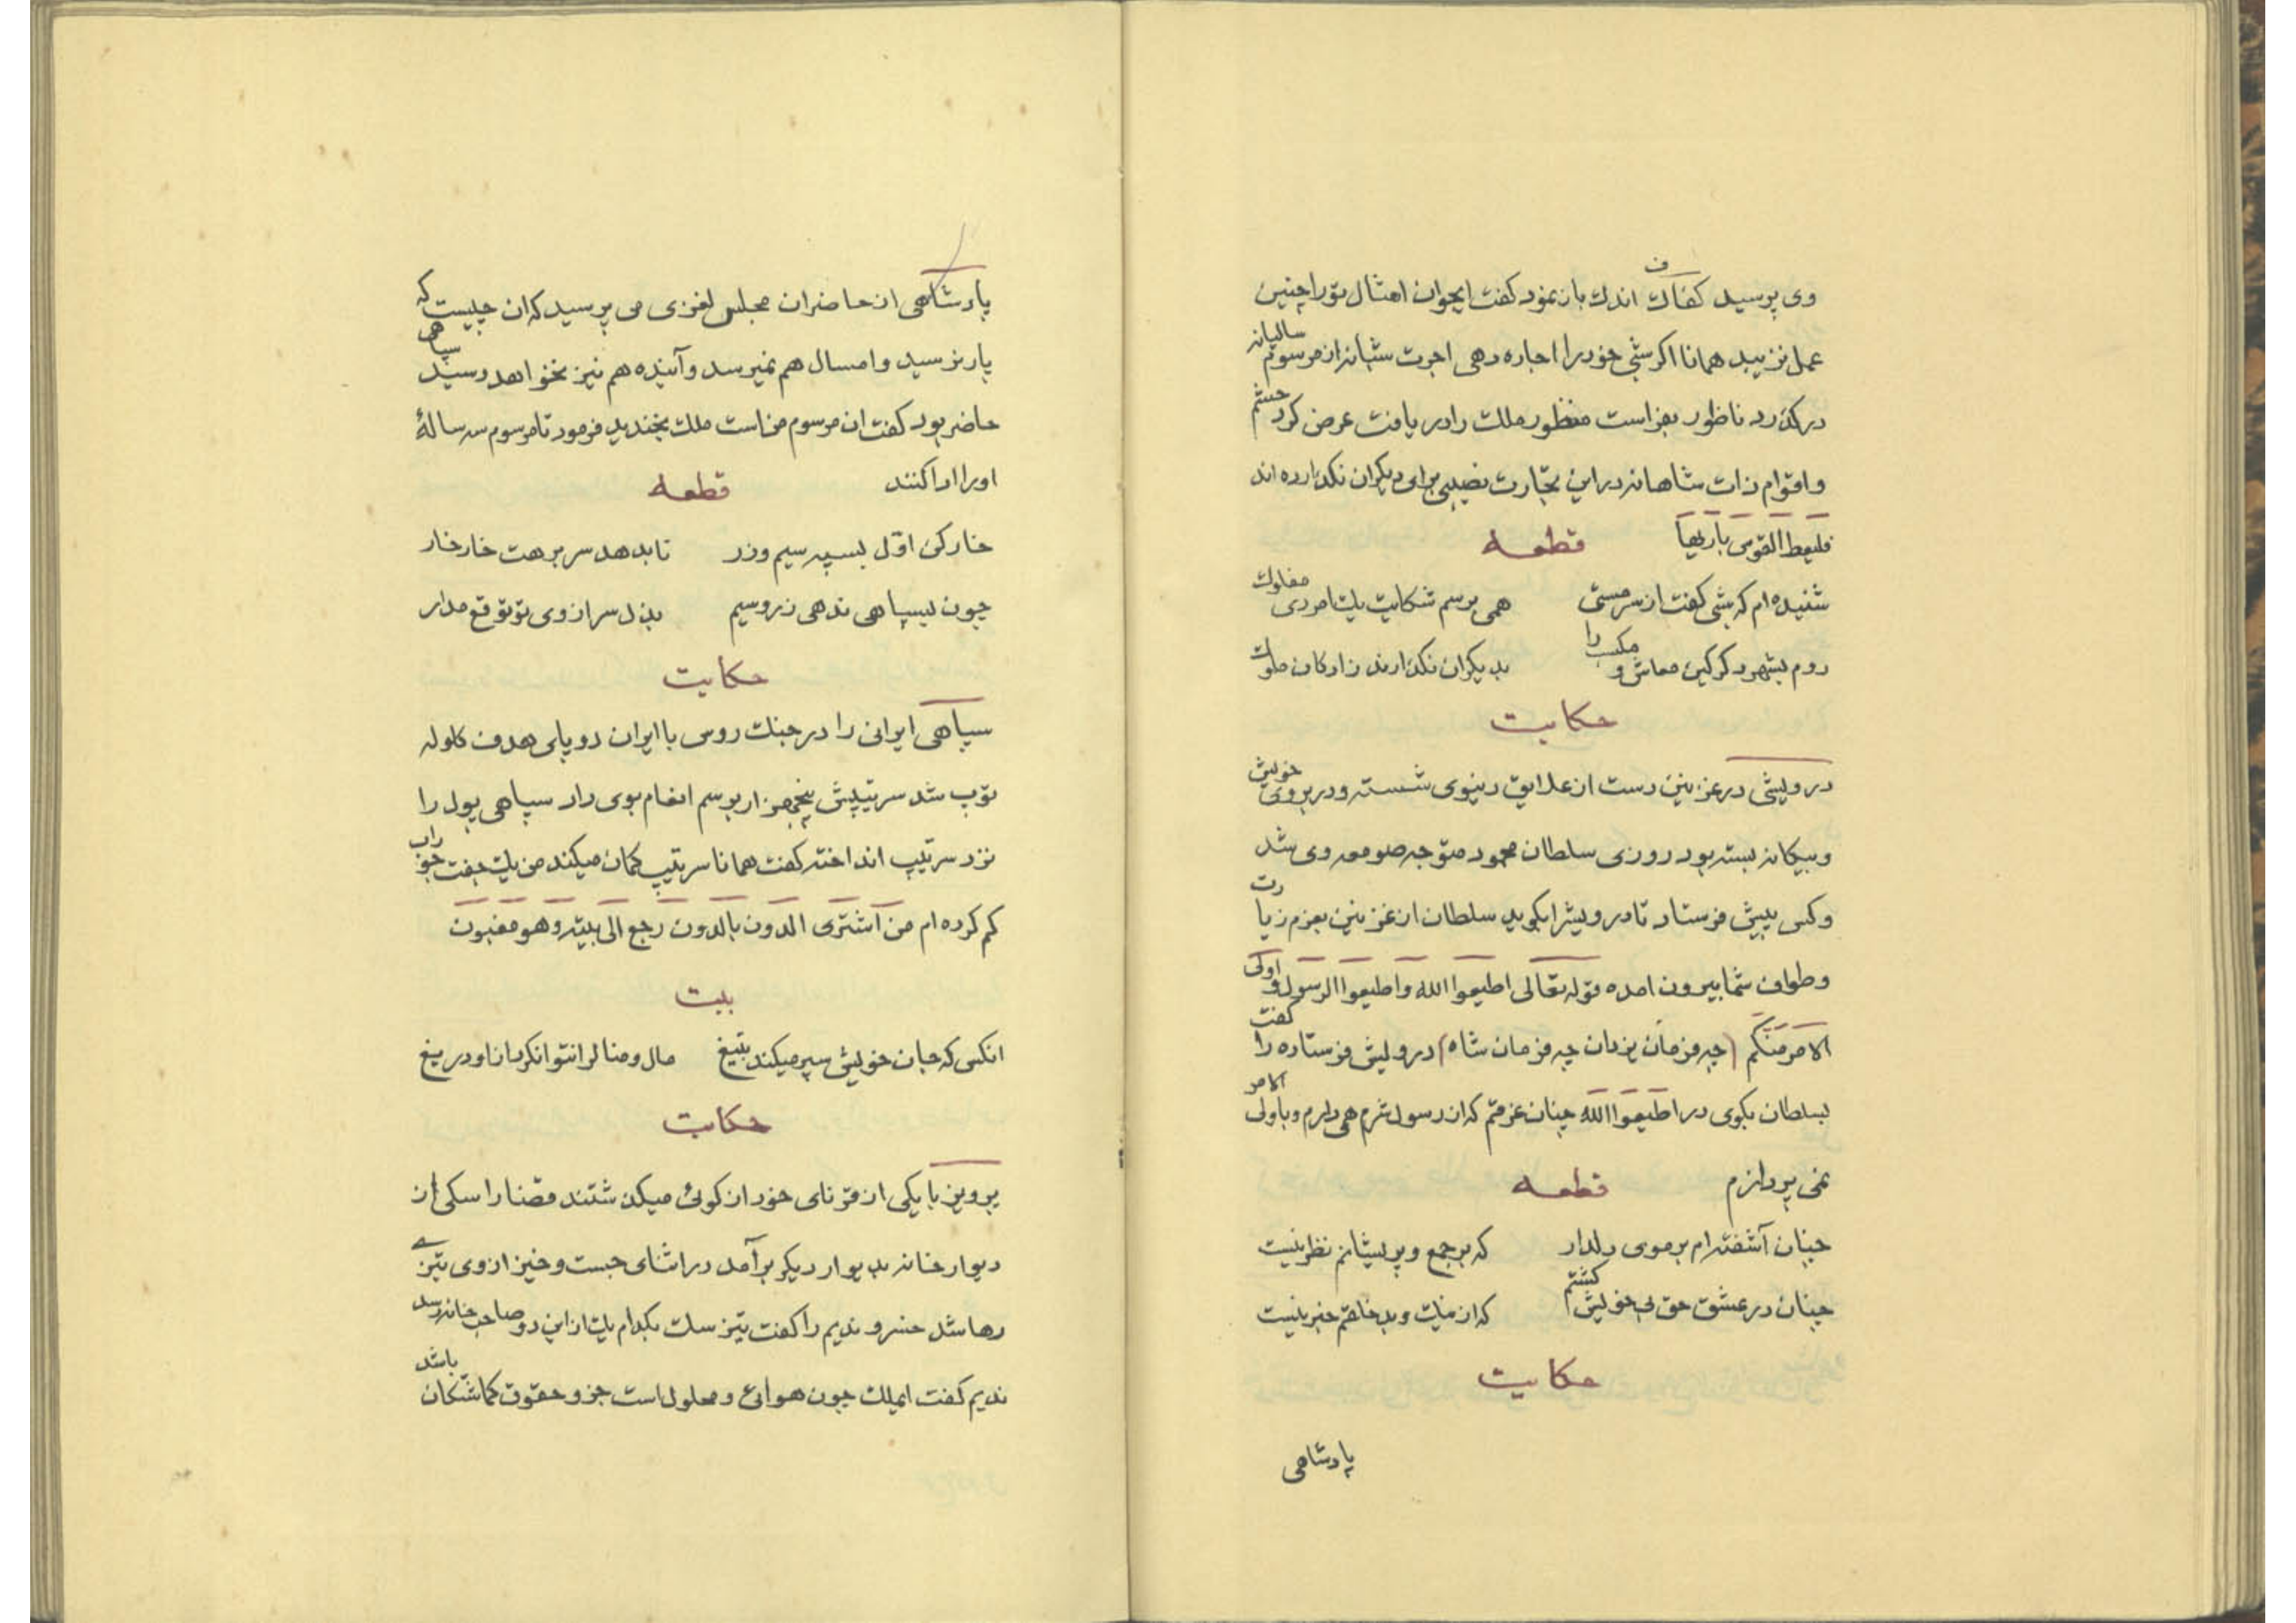 وی پرسید کفاف اندک باز نمود کفت ایجوان امثال تو را چنین
عمل نزیبد همانا اکر شبی خود را اجاره دهی اجرت شبانه از مرسوم سالیانه
در کذرد ناظور بفراست منظور ملک را دریافت عرض کرد حشم
و اقوام ذات شاهانه در این تجارت نصیبی برای دیکران نکذارده اند
فلیعط القوس باریها قطعه
شنیده ام که شبی کفت از سر مستی همی برسم شکایت یک امردی مفلوک
روم بشهر دکر کین معاش و مکسب را بدیکران نکذارند زادکان ملوک
حکایت
درویشی در غزنین دست از علایق دنیوی شسته و در بروی خویش
و بیکانه بسته بود روزی سلطان محمود متوجه صومعه وی شد
و کسی پیش فرستاد تا درویش را بکوید سلطان از غزنین بعزم زیارت
و طواف شما بیرون امده قوله تعالی اطیعوا الله و اطیعوا الرسول و اولی
الامر منکم (چه فرمان یزدان چه فرمان شاه) درویش فرستاده را کفت
بسلطان بکوی در اطیعوا الله چنان غرقم که از رسول شرم همی دارم و باولی الامر
نمی پردازم قطعه
چنان آشفته ام بر موی دلدار که بر جمع و پریشانم نظر نیست
چنان در عشق حق بی خویش کشتم که از نیک و بد خلقم خبر نیست
حکایت
پادشاهی
پادشاهی از حاضران مجلس لغزی می پرسید که ان چیست که
پار نرسید و امسال هم نمیرسد و آینده هم نیز نخواهد رسید سپاهی
حاضر بود کفت ان مرسوم من است ملک بخندید فرمود تا مرسوم سه سالۀ
او را ادا کنند قطعه
خار کن اوّل بسپه سیم و زر تا بدهد سر برهت خار خار
چون بسپاهی ندهی زر و سیم بذل سر از وی تو توقع مدار
حکایت
سپاهی ایرانی را در جنک روس با ایران دو پای هدف کلوله
توپ شد سرتیپش پنجهزار برسم انعام بوی داد سپاهی پول را
نزد سرتیپ انداخته کفت همانا سرتیپ کمان میکند من یک جفت جوراب
کم کرده ام من آشتری الدون بالدون رجع الی بیته و هو مغبون
بیت
انکس که جان خویش سپر میکند بتیغ مال و منال را نتوان کرد از او دریغ
حکایت
پرویز با یکی از قرنای خود از کوئی میکذشتند قضا را سکی از
دیوار خانه بدیوار دیکر برآمد در اثنای جست و خیز از وی تیزی
رها شد خسرو ندیم را کفت تیز سک بکدام یک از این دو صاحب خانه رسد
ندیم کفت ایملک چون هوائی و محلول است جزو حقوق کماشتکان باشد